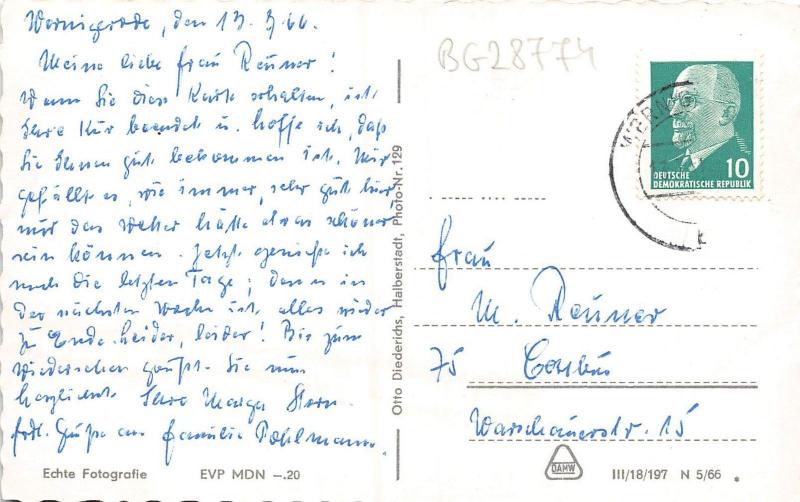 Wernigerode, den 13.9.66.
Meine liebe Frau Reuner!
Wenn Sie diese Karte erhalten, ist
Ihre Kur beendet u. hoffe ich, daß
Sie Ihnen gut bekommen ist. Mir
gefällt es, wie immer, sehr gut hier,
nur das Wetter hätte etwas schöner
sein können. Jetzt genieße ich
noch die letzten Tage; denn in
der nächsten Woche ist alles wieder
zu Ende. Leider, leider! Bis zum
Wiedersehen grüßt Sie nun
herzlichst Ihre Marga Stern
frdl. Grüße an Familie Pohlmann.
Echte Fotografie EVP MDN –.20
Otto Diederichs, Halberstadt, Photo-Nr. 129
BG28774
WERNIG
DEUTSCHE 10
DEMOKRATISCHE REPUBLIK
k
Frau
M. Reuner
75 Cottbus
Warschauerstr. 15
DAMW
III/18/197 N 5/66